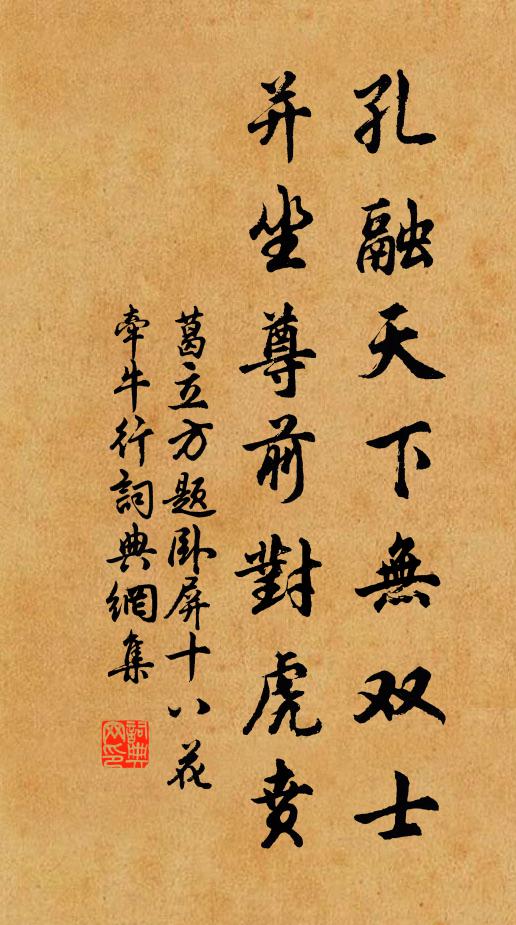 孔融天下無双士
并坐尊前對虎賁
葛立方题卧屏十八花
牽牛行詞典網集
詞典网印